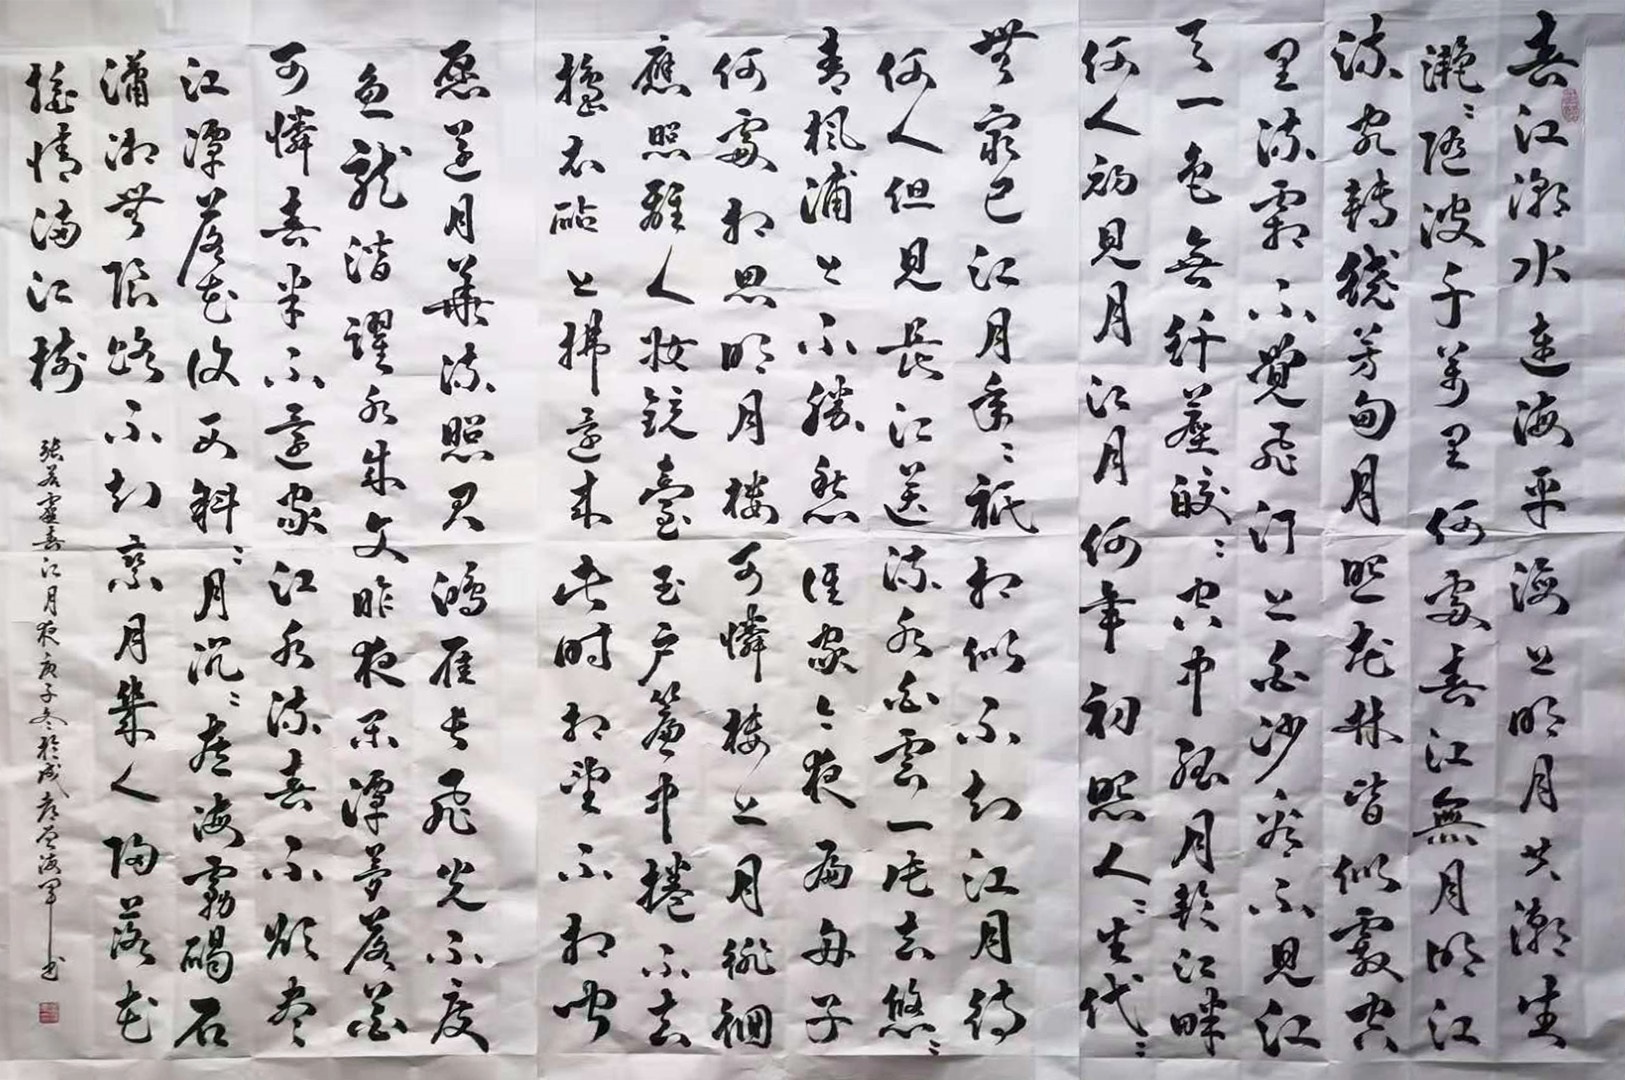 春江潮水連海平海上明月共潮生
灔灔隨波千萬里何處春江無月明江
流宛轉繞芳甸月照花林皆似霰空
里流霜不覺飛汀上白沙看不見江
天一色無纖塵皎皎空中孤月輪江畔
何人初見月江月何年初照人人生代代
無窮已江月年年祇相似不知江月待
何人但見長江送流水白雲一片去悠悠
青楓浦上不勝愁誰家今夜扁舟子
何處相思明月樓可憐樓上月徘徊
應照離人妝鏡臺玉戶簾中捲不去
擣衣砧上拂還來此時相望不相聞
願逐月華流照君鴻雁長飛光不度
魚龍潛躍水成文昨夜閑潭夢落花
可憐春半不還家江水流春不欲盡
江潭落花復西斜斜月沉沉藏海霧碣石
瀟湘無限路不知乘月幾人歸落花
搖情滿江樹
張若虛春江月夜庚子冬於成都海軍書